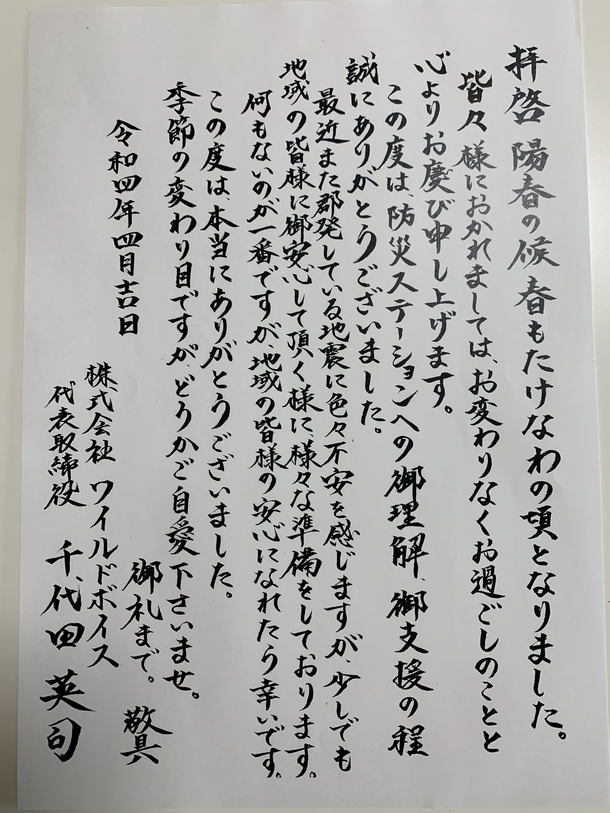 拝啓 陽春の候 春もたけなわの頃となりました。
皆々様におかれましては、お変わりなくお過ごしのことと
心よりお慶び申し上げます。
この度は、防災ステーションへの御理解、御支援の程
誠にありがとうございました。
最近また郡発している地震に色々不安を感じますが、少しでも
地域の皆様に御安心して頂く様に様々な準備をしております。
何もないのが一番ですが、地域の皆様の安心になれたら幸いです。
この度は、本当にありがとうございました。
季節の変わり目ですが、どうかご自愛下さいませ。
御礼まで。 敬具
令和四年四月吉日
株式会社 ワイルドボイス
代表取締役 千代田英司